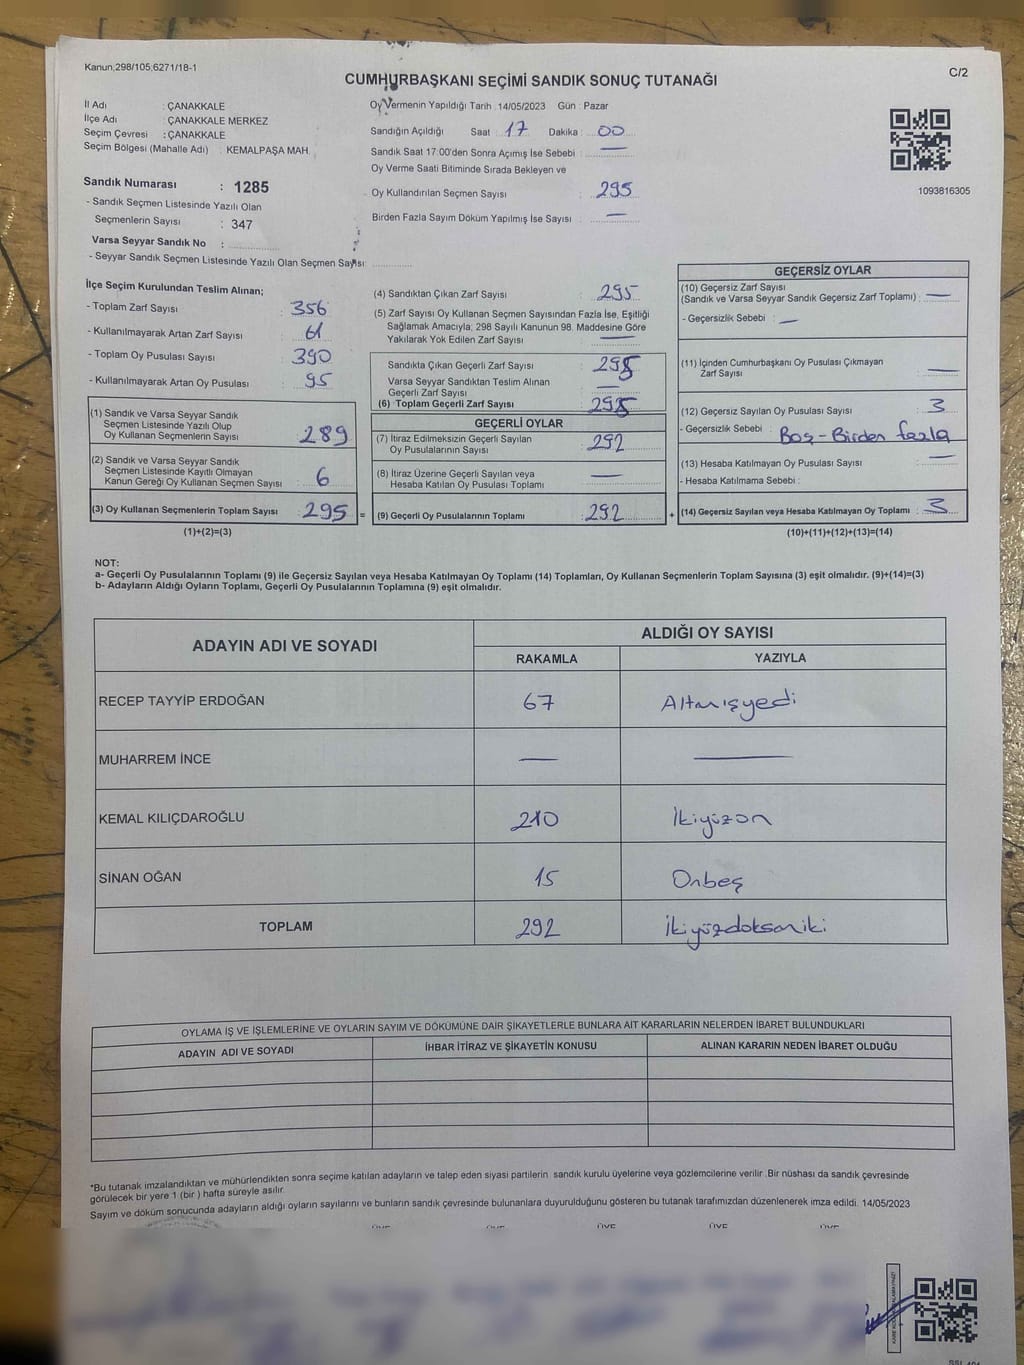 Kanun,298/105;6271/18-1
C/2
CUMHURBAŞKANI SEÇİMİ SANDIK SONUÇ TUTANAĞI
İl Adı : ÇANAKKALE
İlçe Adı : ÇANAKKALE MERKEZ
Seçim Çevresi : ÇANAKKALE
Seçim Bölgesi (Mahalle Adı) : KEMALPAŞA MAH.
Sandık Numarası : 1285
- Sandık Seçmen Listesinde Yazılı Olan
Seçmenlerin Sayısı : 347
Varsa Seyyar Sandık No :
- Seyyar Sandık Seçmen Listesinde Yazılı Olan Seçmen Sayısı:
Oy Vermenin Yapıldığı Tarih : 14/05/2023 Gün : Pazar
Sandığın Açıldığı Saat : 17 Dakika : 00
Sandık Saat 17:00'den Sonra Açımış İse Sebebi : —
Oy Verme Saati Bitiminde Sırada Bekleyen ve
Oy Kullandırılan Seçmen Sayısı : 295
Birden Fazla Sayım Döküm Yapılmış İse Sayısı : —
1093816305
İlçe Seçim Kurulundan Teslim Alınan;
- Toplam Zarf Sayısı : 356
- Kullanılmayarak Artan Zarf Sayısı : 61
- Toplam Oy Pusulası Sayısı : 390
- Kullanılmayarak Artan Oy Pusulası : 95
(1) Sandık ve Varsa Seyyar Sandık
Seçmen Listesinde Yazılı Olup
Oy Kullanan Seçmenlerin Sayısı : 289
(2) Sandık ve Varsa Seyyar Sandık
Seçmen Listesinde Kayıtlı Olmayan
Kanun Gereği Oy Kullanan Seçmen Sayısı : 6
(3) Oy Kullanan Seçmenlerin Toplam Sayısı : 295 =
(1)+(2)=(3)
(4) Sandıktan Çıkan Zarf Sayısı : 295
(5) Zarf Sayısı Oy Kullanan Seçmen Sayısından Fazla İse, Eşitliği
Sağlamak Amacıyla; 298 Sayılı Kanunun 98. Maddesine Göre
Yakılarak Yok Edilen Zarf Sayısı : —
Sandıkta Çıkan Geçerli Zarf Sayısı : 295
Varsa Seyyar Sandıktan Teslim Alınan
Geçerli Zarf Sayısı : —
(6) Toplam Geçerli Zarf Sayısı : 295
GEÇERLİ OYLAR
(7) İtiraz Edilmeksizin Geçerli Sayılan
Oy Pusulalarının Sayısı : 292
(8) İtiraz Üzerine Geçerli Sayılan veya
Hesaba Katılan Oy Pusulası Toplamı : —
(9) Geçerli Oy Pusulalarının Toplamı : 292 +
GEÇERSİZ OYLAR
(10) Geçersiz Zarf Sayısı
(Sandık ve Varsa Seyyar Sandık Geçersiz Zarf Toplamı) : —
- Geçersizlik Sebebi : —
(11) İçinden Cumhurbaşkanı Oy Pusulası Çıkmayan
Zarf Sayısı : —
(12) Geçersiz Sayılan Oy Pusulası Sayısı : 3
- Geçersizlik Sebebi : Boş-Birden fazla
(13) Hesaba Katılmayan Oy Pusulası Sayısı : —
- Hesaba Katılmama Sebebi :
(14) Geçersiz Sayılan veya Hesaba Katılmayan Oy Toplamı : 3
(10)+(11)+(12)+(13)=(14)
NOT:
a- Geçerli Oy Pusulalarının Toplamı (9) ile Geçersiz Sayılan veya Hesaba Katılmayan Oy Toplamı (14) Toplamları, Oy Kullanan Seçmenlerin Toplam Sayısına (3) eşit olmalıdır. (9)+(14)=(3)
b- Adayların Aldığı Oyların Toplamı, Geçerli Oy Pusulalarının Toplamına (9) eşit olmalıdır.
ADAYIN ADI VE SOYADI
ALDIĞI OY SAYISI
RAKAMLA YAZIYLA
RECEP TAYYİP ERDOĞAN 67 Altmışyedi
MUHARREM İNCE — —
KEMAL KILIÇDAROĞLU 210 İkiyüzon
SİNAN OĞAN 15 Onbeş
TOPLAM 292 İkiyüzdoksaniki
OYLAMA İŞ VE İŞLEMLERİNE VE OYLARIN SAYIM VE DÖKÜMÜNE DAİR ŞİKAYETLERLE BUNLARA AİT KARARLARIN NELERDEN İBARET BULUNDUKLARI
ADAYIN ADI VE SOYADI İHBAR İTİRAZ VE ŞİKAYETİN KONUSU ALINAN KARARIN NEDEN İBARET OLDUĞU
*Bu tutanak imzalandıktan ve mühürlendikten sonra seçime katılan adayların ve talep eden siyasi partilerin sandık kurulu üyelerine veya gözlemcilerine verilir. Bir nüshası da sandık çevresinde
görülecek bir yere 1 (bir) hafta süreyle asılır.
Sayım ve döküm sonucunda adayların aldığı oyların sayılarını ve bunların sandık çevresinde bulunanlara duyurulduğunu gösteren bu tutanak tarafımızdan düzenlenerek imza edildi. 14/05/2023
ÜYE ÜYE ÜYE ÜYE ÜYE